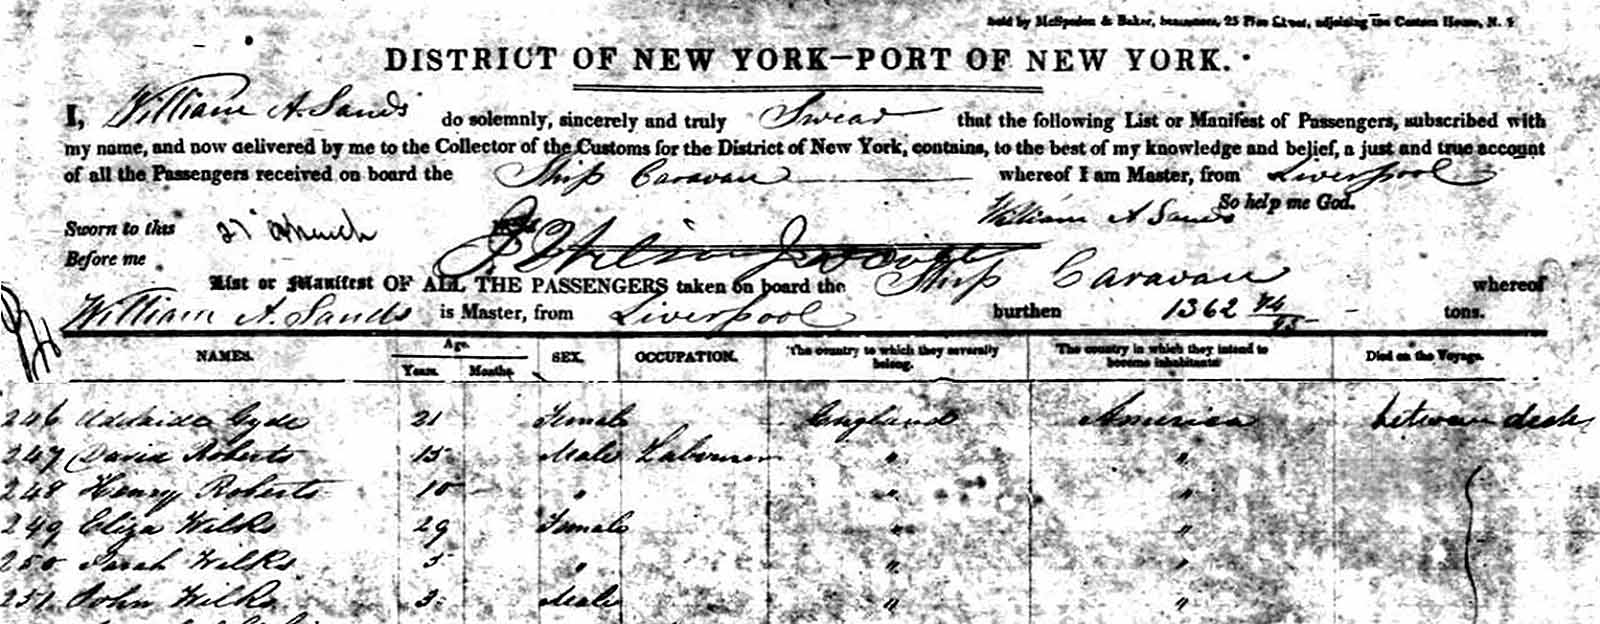 Sold by McSpedon & Baker, Stationers, 25 Pine Street, adjoining the Custom House, N. Y
DISTRICT OF NEW YORK—PORT OF NEW YORK.
I, William A. Sands do solemnly, sincerely and truly Swear that the following List or Manifest of Passengers, subscribed with
my name, and now delivered by me to the Collector of the Customs for the District of New York, contains, to the best of my knowledge and belief, a just and true account
of all the Passengers received on board the Ship Caravan whereof I am Master, from Liverpool
So help me God.
Sworn to this 27 March William A Sands
Before me
List or Manifest OF ALL THE PASSENGERS taken on board the Ship Caravan whereof
William A. Sands is Master, from Liverpool burthen 1362 tons.
NAMES. Age. SEX. OCCUPATION. The country to which they severally belong. The country in which they intend to become inhabitants Died on the Voyage.
Years. Months.
246 Adelaide Gyde 21 Female England America between decks
247 David Roberts 15 Male Labourer " "
248 Henry Roberts 10 " " "
249 Eliza Wilks 29 Female " "
250 Sarah Wilks 5 " " "
251 John Wilks 3 Male " "